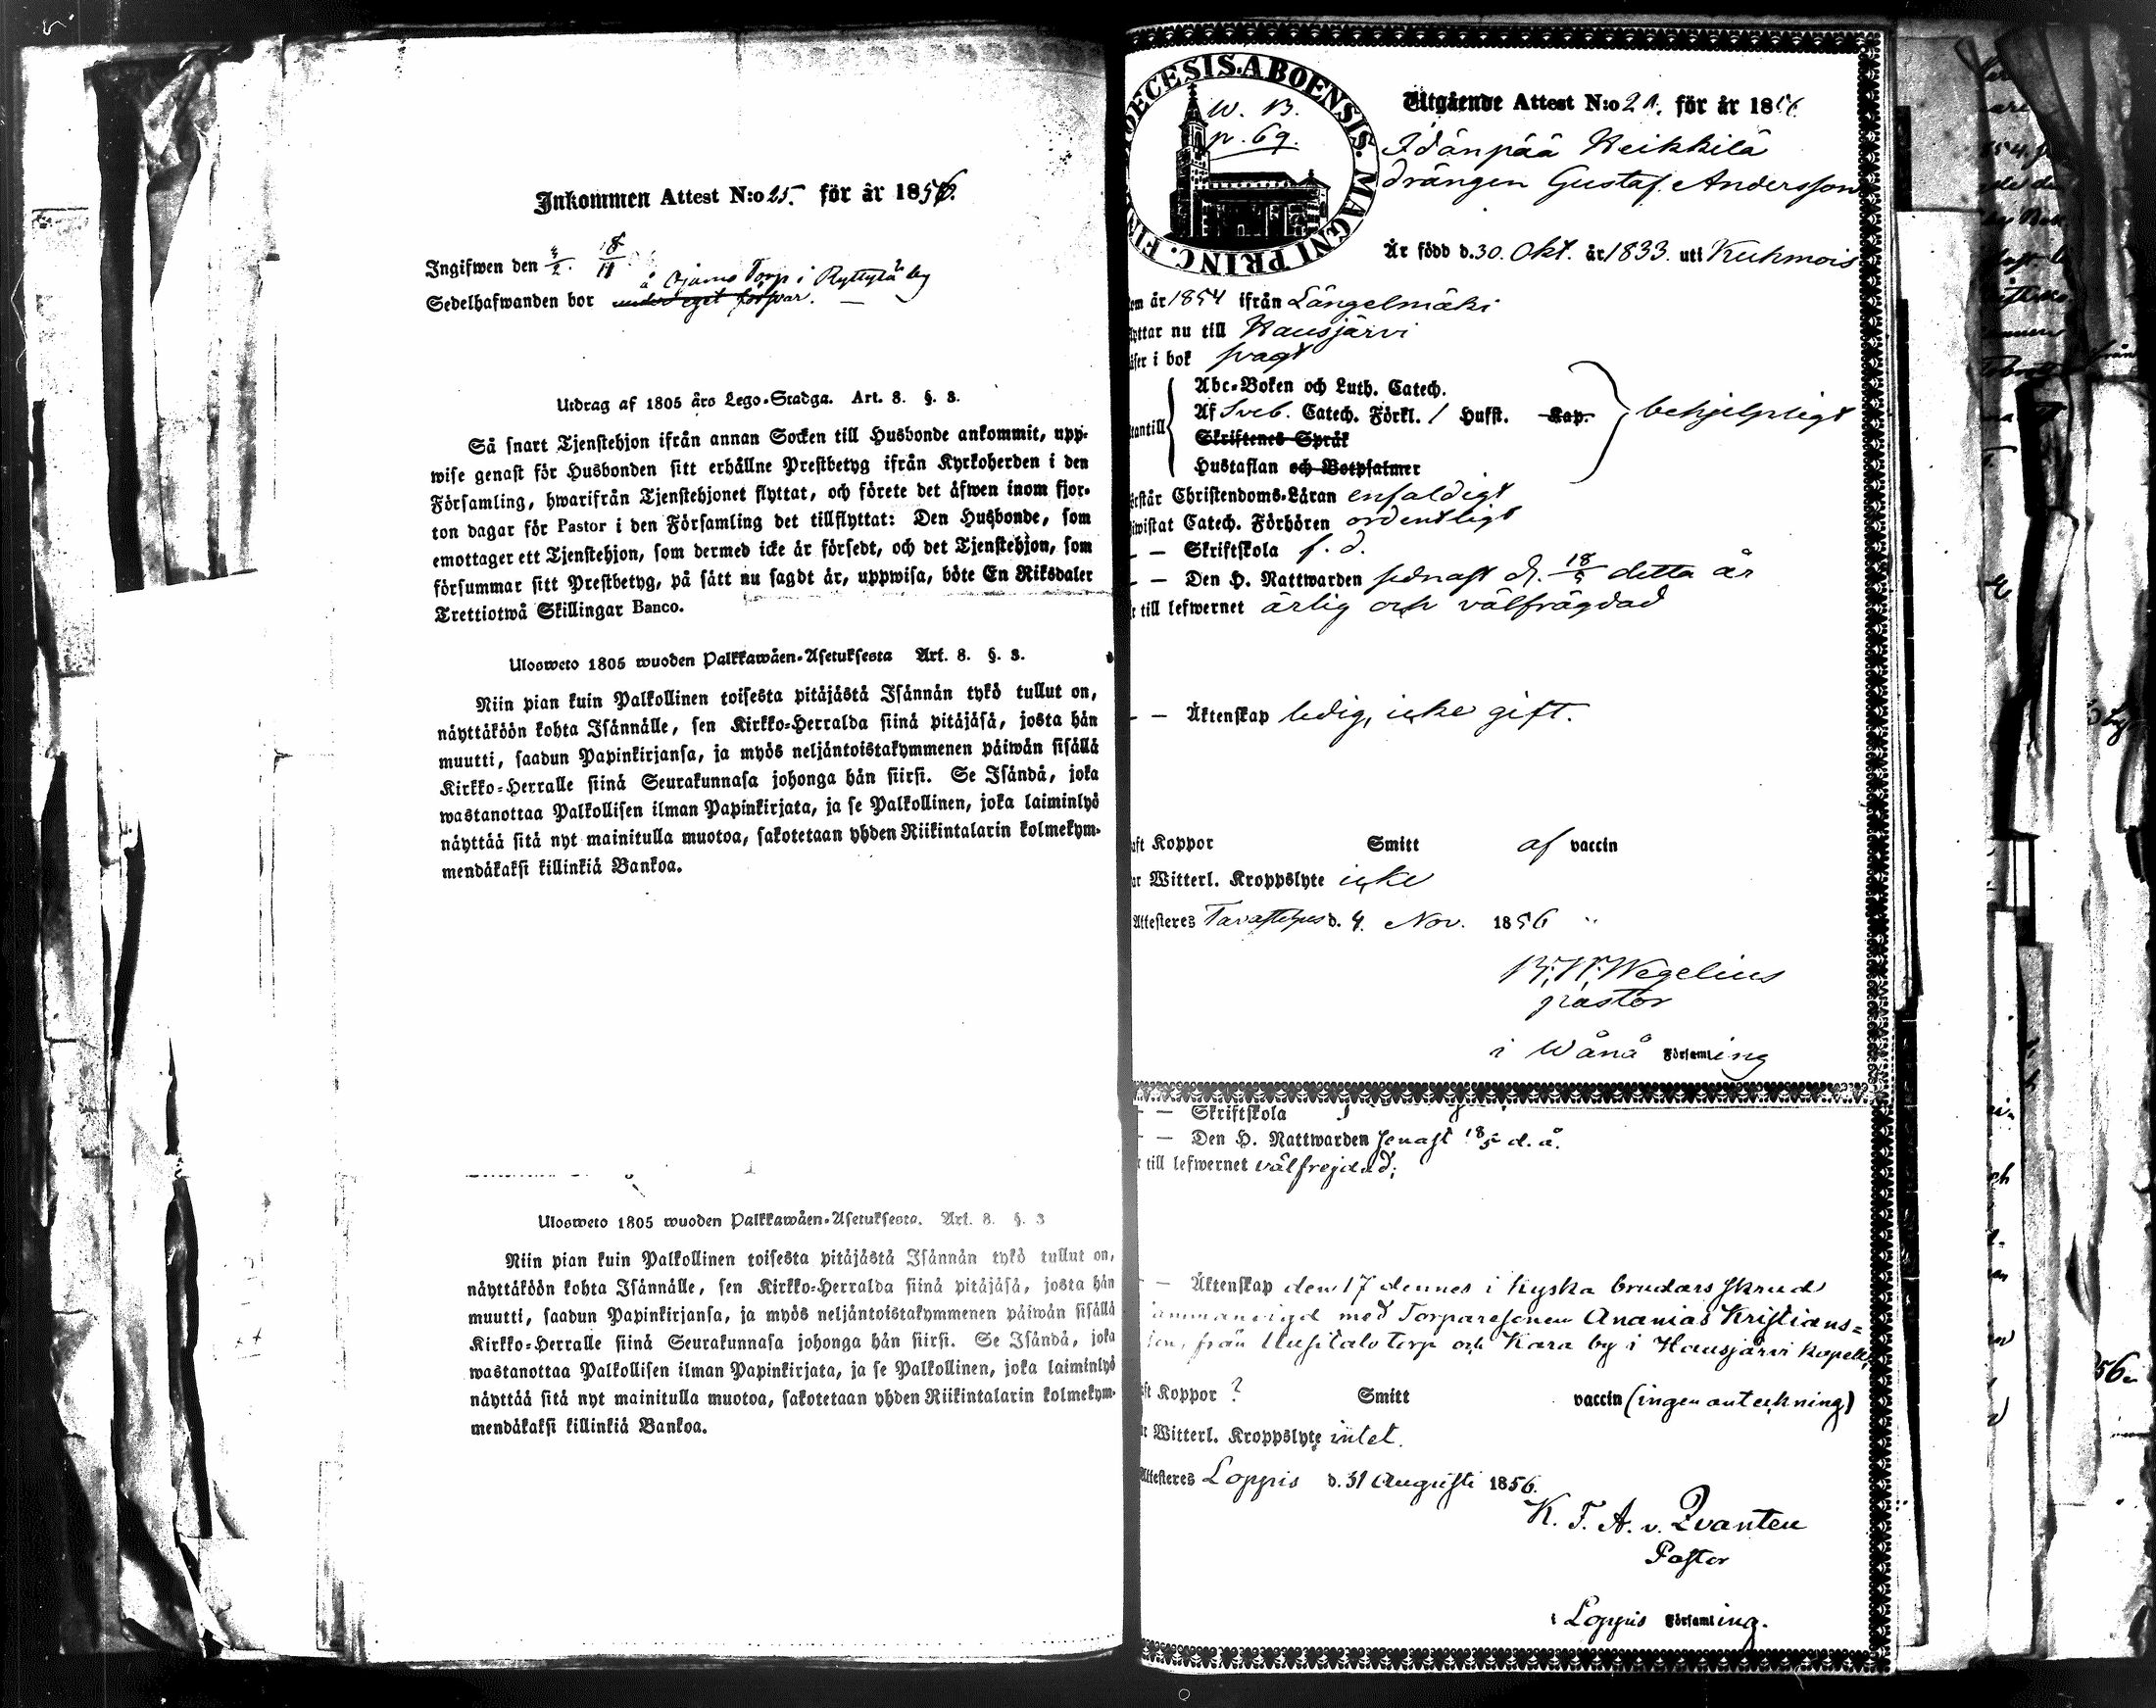 Inkommen Attest N:o 25. för år 1856.
Ingifwen den
Sedelhafwanden bor under eget försvar.
å Ojamo Torp i Ryttylä by
Utdrag af 1805 års Lego-Stadga. Art. 8. §. 3.
Så snart Tjenstehjon ifrån annan Socken till Husbonde ankommit, upp-
wise genast för Husbonden sitt erhållne Prestbetyg ifrån Kyrkoherden i den
Församling, hwarifrån Tjenstehjonet flyttat, och förete det äfwen inom fjor-
ton dagar för Pastor i den Församling det tillflyttat: Den Husbonde, som
emottager ett Tjenstehjon, som dermed icke är försedt, och det Tjenstehjon, som
försummar sitt Prestbetyg, på sätt nu sagdt är, uppwisa, böte En Riksdaler
Trettiotwå Skillingar Banco.
Ulosweto 1805 wuoden Palkkawäen-Asetuksesta Art. 8. §. 3.
Niin pian kuin Palkollinen toisesta pitäjästä Isännän tykö tullut on,
näyttäköön kohta Isännälle, sen Kirkko-Herralda siinä pitäjäsä, josta hän
muutti, saadun Papinkirjansa, ja myös neljäntoistakymmenen päiwän sisällä
Kirkko-Herralle siinä Seurakunnasa johonga hän siirsi. Se Isändä, joka
wastanottaa Palkollisen ilman Papinkirjata, ja se Palkollinen, joka laiminlyö
näyttää sitä nyt mainitulla muotoa, sakotetaan yhden Riikintalarin kolmekym-
mendäkaksi killinkiä Bankoa.
Ulosweto 1805 wuoden Palkkawäen-Asetuksesta. Art. 8. §. 3
Niin pian kuin Palkollinen toisesta pitäjästä Isännän tykö tullut on,
näyttäköön kohta Isännälle, sen Kirkko-Herralda siinä pitäjäsä, josta hän
muutti, saadun Papinkirjansa, ja myös neljäntoistakymmenen päiwän sisällä
Kirkko-Herralle siinä Seurakunnasa johonga hän siirsi. Se Isändä, joka
wastanottaa Palkollisen ilman Papinkirjata, ja se Palkollinen, joka laiminlyö
näyttää sitä nyt mainitulla muotoa, sakotetaan yhden Riikintalarin kolmekym-
mendäkaksi killinkiä Bankoa.
DIOECESIS. ABOENSIS. MAGNI PRINC. FIN
W. B.
p. 69.
Utgående Attest N:o för år 1856
Idänpää Heikkilä
drängen Gustaf Andersson
Är född d. 30. Okt. år 1833. uti Kuhmois
om år 1854 ifrån Längelmäki
yttar nu till Hausjärvi
äser i bok svagt
Abc-Boken och Luth. Catech.
Af Sveb. Catech. Förkl. / Husst. Kap.
utantill behjelpligt
Skriftenes Språk
Hustaflan och Botpsalmer
örstår Christendoms-Läran enfaldigt
iwistat Catech. Förhören ordentligt
— — Skriftskola f. d.
— — Den H. Nattwarden sednast d. 18/5 detta år
r till lefwernet ärlig och välfrägdad
— — Äktenskap ledig, icke gift.
aft Koppor Smitt af vaccin
ar Witterl. Kroppslyte icke
Attesteres Tavastehus d. 4. Nov. 1856
Wegelius
pastor
i Wånå Församling
— — Skriftskola
— — Den H. Nattwarden senast 18/5 d. å.
r till lefwernet välfrejdad;
— — Äktenskap den 17 dennes i kyska brudars skrud
ammanvigd med Torparesonen Ananias Kristians=
son, från Uusitalo torp och Kara by i Hausjärvi kapell,
aft Koppor ? Smitt vaccin (ingen anteckning)
r Witterl. Kroppslyte intet.
Attesteres Loppis d. 31 Augusti 1856.
K. F. A. v. Qvanten
Pastor
i Loppis Församling.